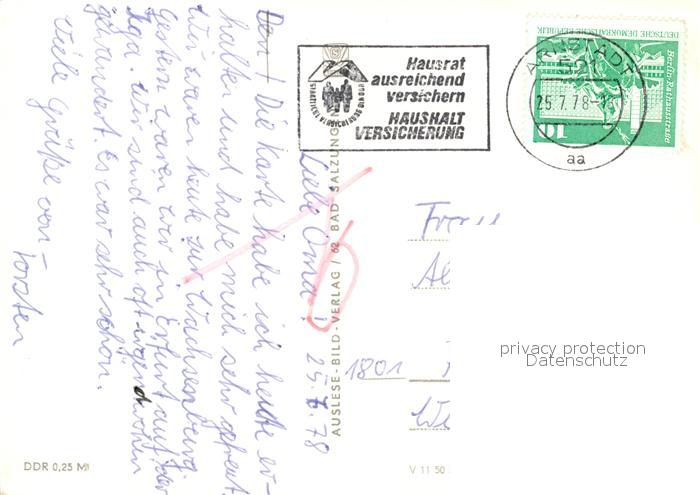 Liebe Oma! 25.7.78
Den / Die Karte habe ich heute er-
halten und habe mich sehr gefreut.
Wir waren heute zur Wachsenburg.
Gestern waren wir in Erfurt auf der
Iga. Wir sind auch oft
gewandert. Es war sehr schön.
Viele Grüße von
Torsten
Hausrat
ausreichend
versichern
HAUSHALT
VERSICHERUNG
STAATLICHE VERSICHERUNG DER DDR
ARNSTADT
521
25.7.78
aa
DEUTSCHE DEMOKRATISCHE REPUBLIK
Berlin-Rathausstraße
10
AUSLESE-BILD-VERLAG / 62 BAD SALZUNGEN
1801
privacy protection
Datenschutz
DDR 0,25 M
V 11 50